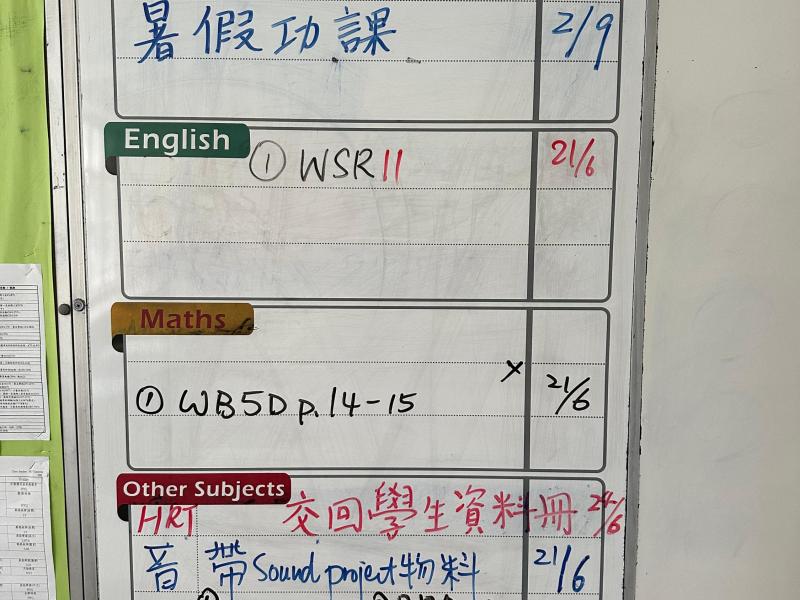 暑假功課 2/9
English
① WSR11 21/6
Maths
① WB5D p.14-15 × 21/6
Other Subjects
HRT 交回學生資料冊 24/6
音 帶Sound project物料 21/6